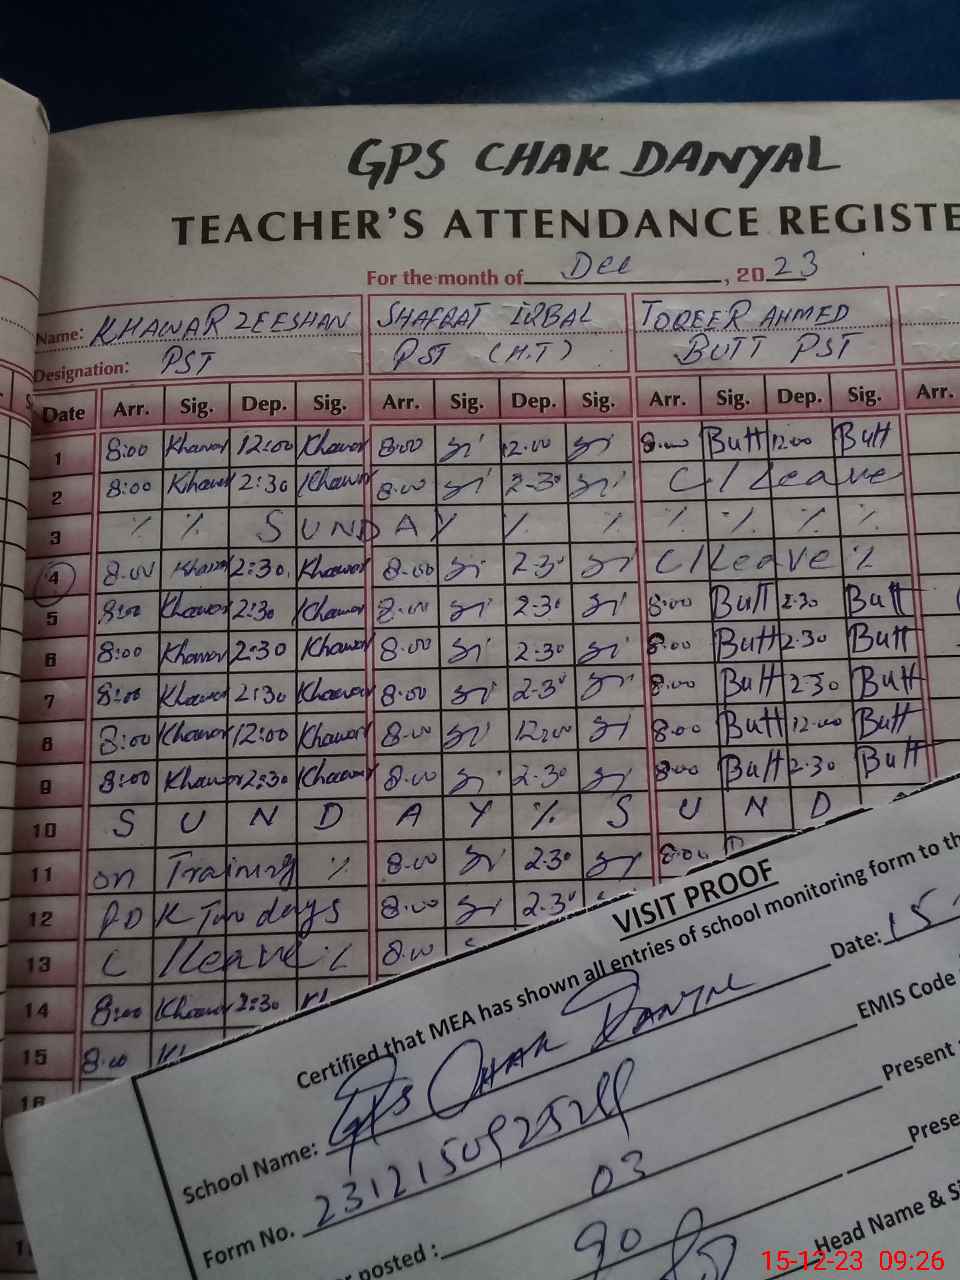 GPS CHAK DANYAL
TEACHER'S ATTENDANCE REGISTE
For the month of Dec, 2023
Name: KHAWAR ZEESHAN SHAFQAT IQBAL TOQEER AHMED
Designation: PST PST (H.T) BUTT PST
Date Arr. Sig. Dep. Sig. Arr. Sig. Dep. Sig. Arr. Sig. Dep. Sig. Arr.
1 8:00 Khawar 12:00 Khawar 8:00 12.00 8:00 Butt 12:00 Butt
2 8:00 Khawar 2:30 Khawar 8:00 2-30 C/Leave
3 % % SUNDAY % % % % % %
4 8:00 Khawar 2:30 Khawar 8:00 2-30 C/Leave %
5 8:00 Khawar 2:30 Khawar 8:00 2-30 8:00 Butt 2-30 Butt
6 8:00 Khawar 2:30 Khawar 8:00 2-30 8:00 Butt 2-30 Butt
7 8:00 Khawar 2:30 Khawar 8:00 2-30 8:00 Butt 2-30 Butt
8 8:00 Khawar 12:00 Khawar 8:00 12:00 8:00 Butt 12:00 Butt
9 8:00 Khawar 2:30 Khawar 8:00 2-30 8:00 Butt 2-30 Butt
10 S U N D A Y % S U N D
11 on Training % 8:00 2-30 8:00
12 PDK Two days 8:00 2-30
13 C/leave % 8:00
14 8:00 Khawar 2:30
15 8:00
16
VISIT PROOF
Certified that MEA has shown all entries of school monitoring form to th
School Name: GPS CHAK DANYAL Date: 15
Form No. EMIS Code
posted: 03 Present
90 Prese
Head Name & Si
15-12-23 09:26